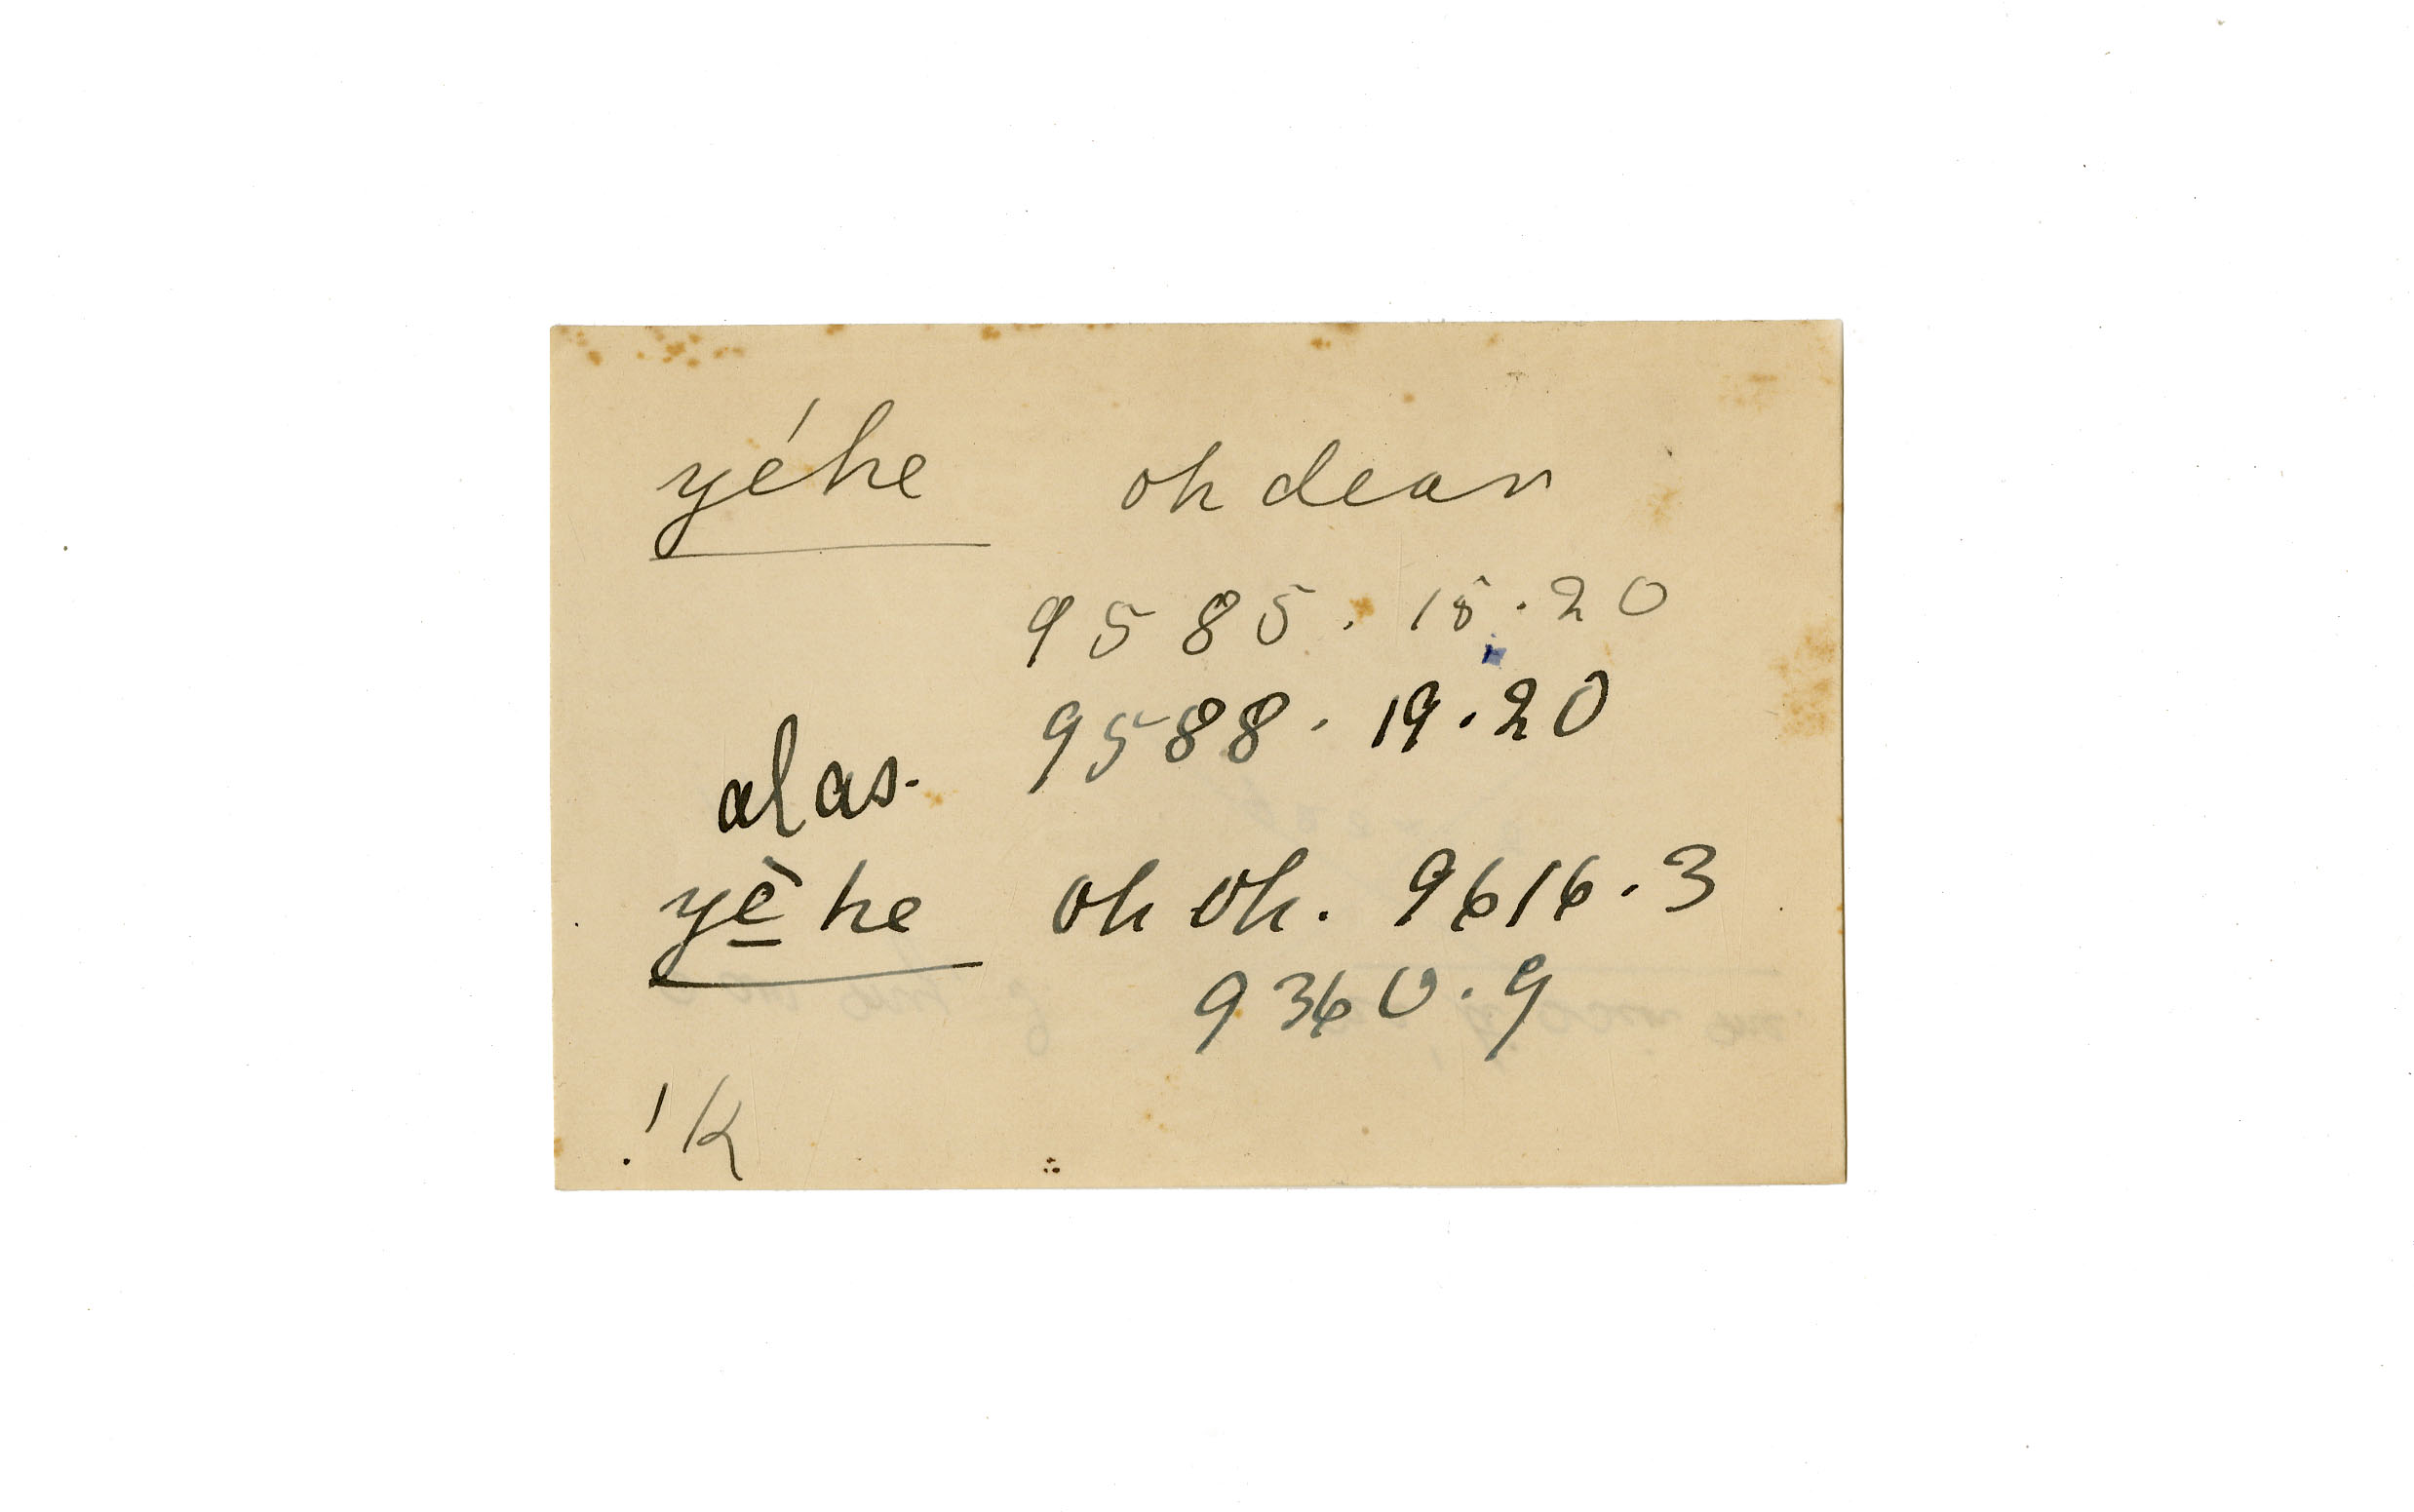 yéhe oh dear
9585. 18.20
9588. 19.20
alas.
yé̱he oh oh. 9616.3
9360.9
!k